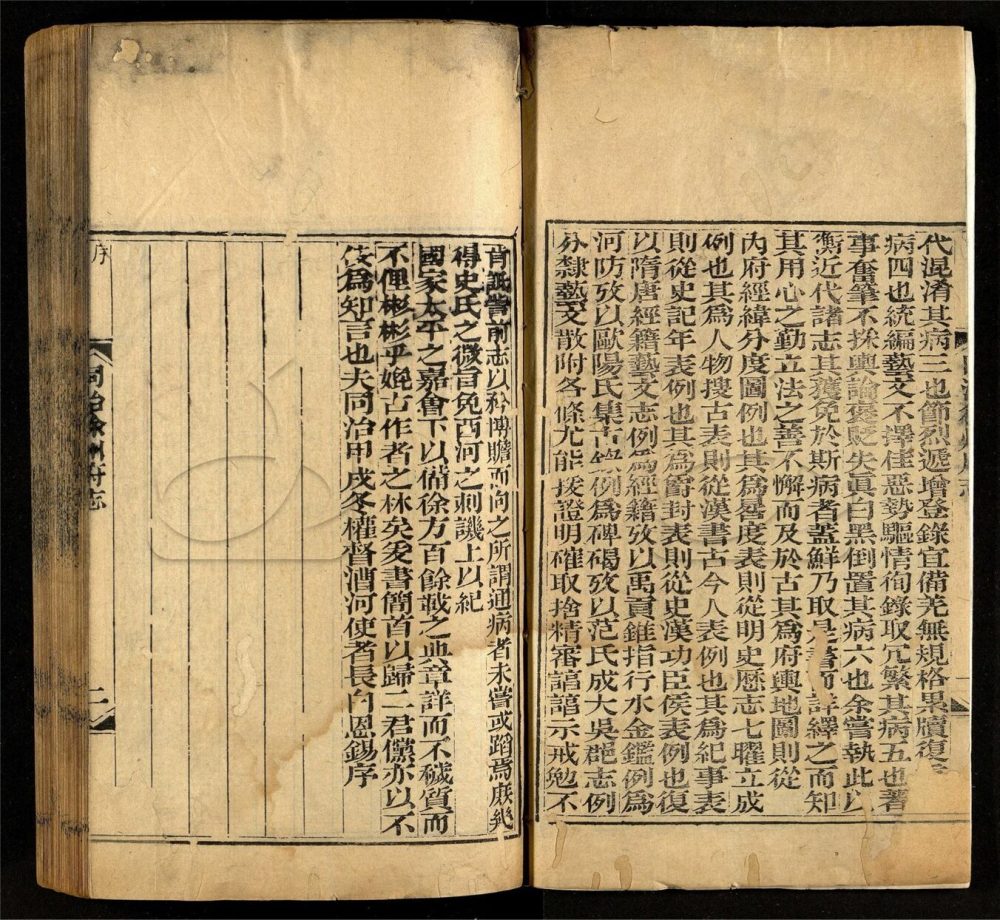 代混淆其病三也節烈遞增登錄宜備羌無規格累牘復
病四也統編藝文不擇佳惡勢驅情徇錄取冗繁其病五也著
事奮筆不採輿論褒貶失真白黑倒置其病六也余嘗執此以
衡近代諸志其獲免於斯病者蓋鮮乃取是書而詳繹之而知
其用心之勤立法之善不懈而及於古其為府輿地圖則從
內府經緯分度圖例也其為晷度表則從明史歷志七曜立成
例也其為人物搜古表則從漢書古今人表例也其為紀事表
則從史記年表例也其為爵封表則從史漢功臣侯表例也復
以隋唐經籍藝文志例為經籍攷以禹貢錐指行水金鑑例為
河防攷以歐陽氏集古錄例為碑碣攷以范氏成大吳郡志例
分隸藝文散附各條尤能援證明確取捨精審諄諄示戒勉不
肯詆訾前志以矜博贍而向之所謂通病者未嘗或蹈焉庶幾
得史氏之微旨免西河之刺譏上以紀
國家太平之嘉會下以備徐方百餘載之典章詳而不穢質而
不俚彬彬乎娩古作者之林矣爰書簡首以歸二君儻亦以不
佞為知言也夫同治甲戌冬權督漕河使者長白恩錫序
同治徐州府志
序
二